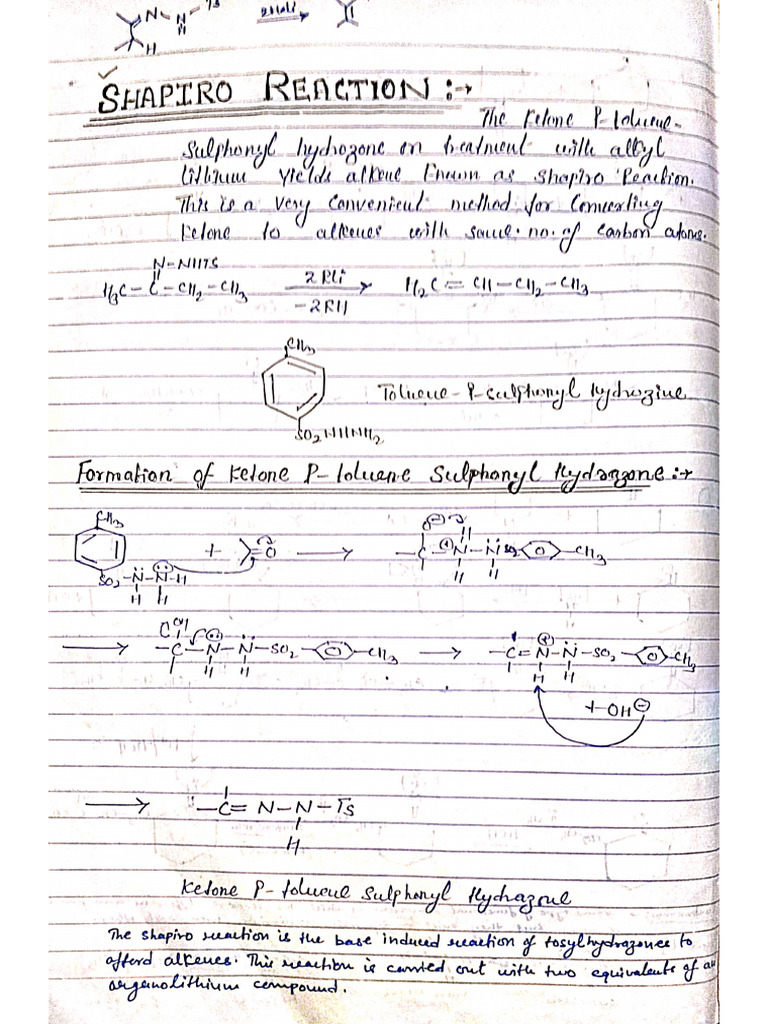 N-N-Ts
H
2RLi
H
SHAPIRO REACTION :→
The Ketone P-toluene-
Sulphonyl hydrozone on treatment with alkyl
lithium yields alkene Known as Shapiro Reaction.
This is a very convenient method for Converting
Ketone to alkenes with same no. of carbon atoms.
N-NHTS
H3C-C-CH2-CH3 2RLi → H2C=CH-CH2-CH3
-2RH
CH3
Toluene-P-sulphonyl hydrozine
SO2NHNH2
Formation of Ketone P-toluene Sulphonyl Hydrazone :→
CH3
+ =O → -C-N-N-SO2- -CH3
SO2-N-N-H
H H
H H
→ -C-N-N-SO2- -CH3 → -C=N-N-SO2- -CH3
H H H H
+OH⊖
→ -C=N-N-Ts
H
Ketone P-toluene Sulphonyl Hydrazone
The shapiro reaction is the base induced reaction of tosylhydrazones to
afford alkenes. This reaction is carried out with two equivalents of an
organolithium compound.